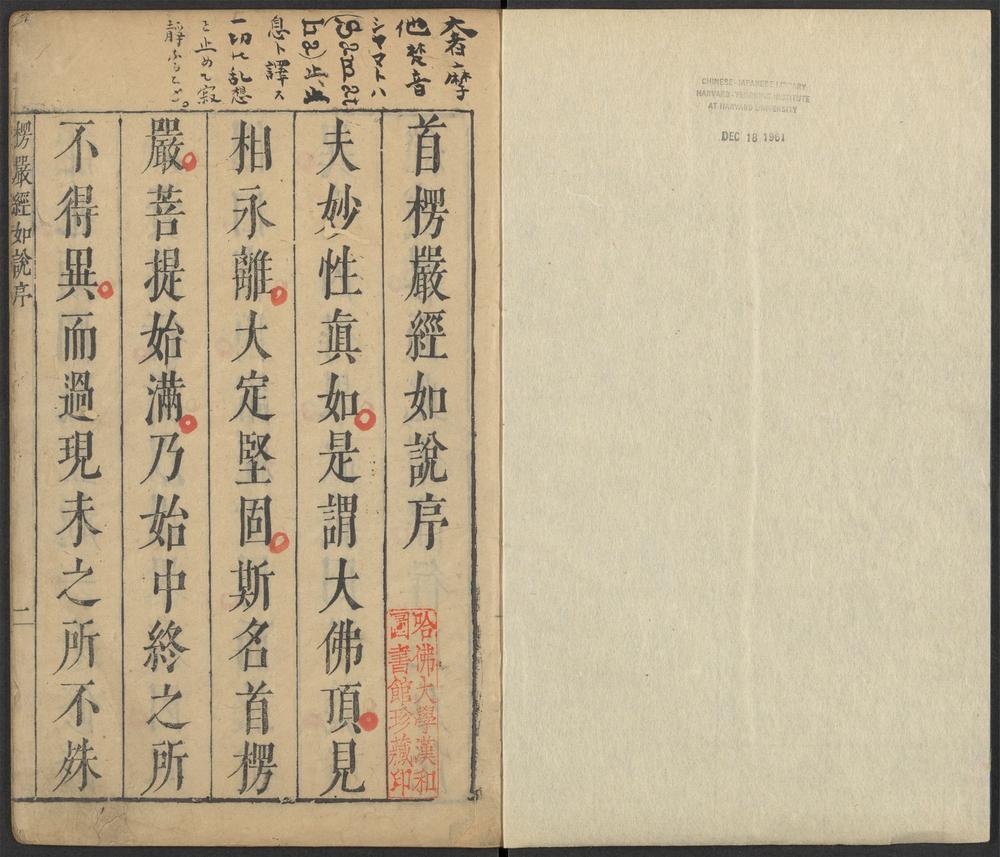 CHINESE-JAPANESE LIBRARY
HARVARD-YENCHING INSTITUTE
AT HARVARD UNIVERSITY
DEC 18 1961
奢摩
他梵音
シヤマトハ
(Samat
ha)止
息ト譯ス
一切ノ乱想
ヲ止めて寂
靜
首楞嚴經如說序
夫妙性真如是謂大佛頂見
相永離大定堅固斯名首楞
嚴菩提始滿乃始中終之所
不得異而過現未之所不殊
哈佛大學漢和
圖書館珍藏印
楞嚴經如說序
一